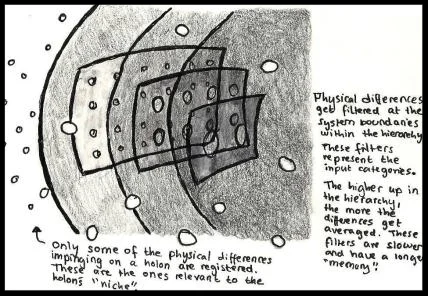 Physical differences
get filtered at the
system boundaries
within the hierarchy
These filters
represent the
input categories.
The higher up in
the hierarchy,
the more the
differences get
averaged. These
filters are slower
and have a longe
"memory".
only some of the physical differences
impinging on a holon are registered.
These are the ones relevant to the
holons "niche".